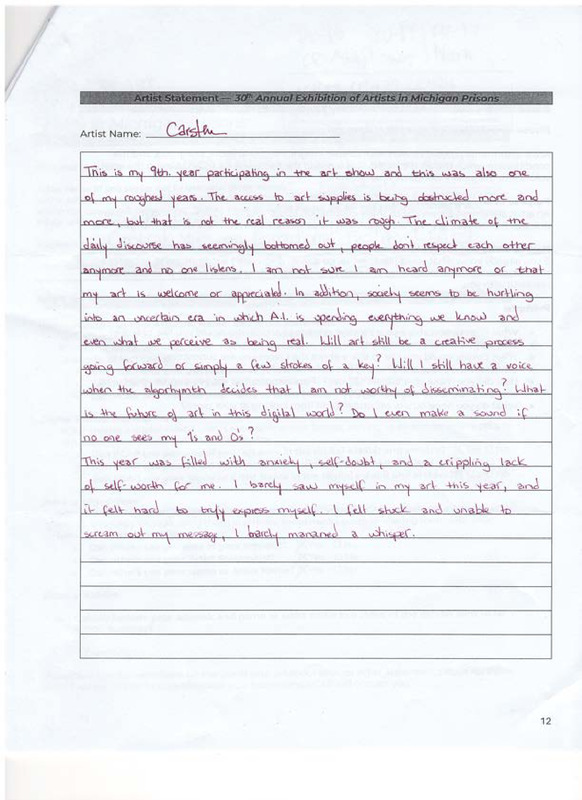 Artist Statement — 30th Annual Exhibition of Artists in Michigan Prisons
Artist Name: Carsten
This is my 9th. year participating in the art show and this was also one
of my roughest years. The access to art supplies is being obstructed more and
more, but that is not the real reason it was rough. The climate of the
daily discourse has seemingly bottomed out, people don't respect each other
anymore and no one listens. I am not sure I am heard anymore or that
my art is welcome or appreciated. In addition, society seems to be hurtling
into an uncertain era in which A.I. is upending everything we know and
even what we perceive as being real. Will art still be a creative process
going forward or simply a few strokes of a key? Will I still have a voice
when the algorhymth decides that I am not worthy of disseminating? What
is the future of art in this digital world? Do I even make a sound if
no one sees my 1's and 0's?
This year was filled with anxiety, self-doubt, and a crippling lack
of self-worth for me. I barely saw myself in my art this year, and
it felt hard to truly express myself. I fell stuck and unable to
scream out my message, I barely managed a whisper.
12